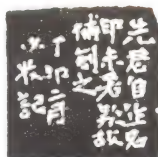 先君自作名
印未署款故
補刻之
丁卯二月
小牧記